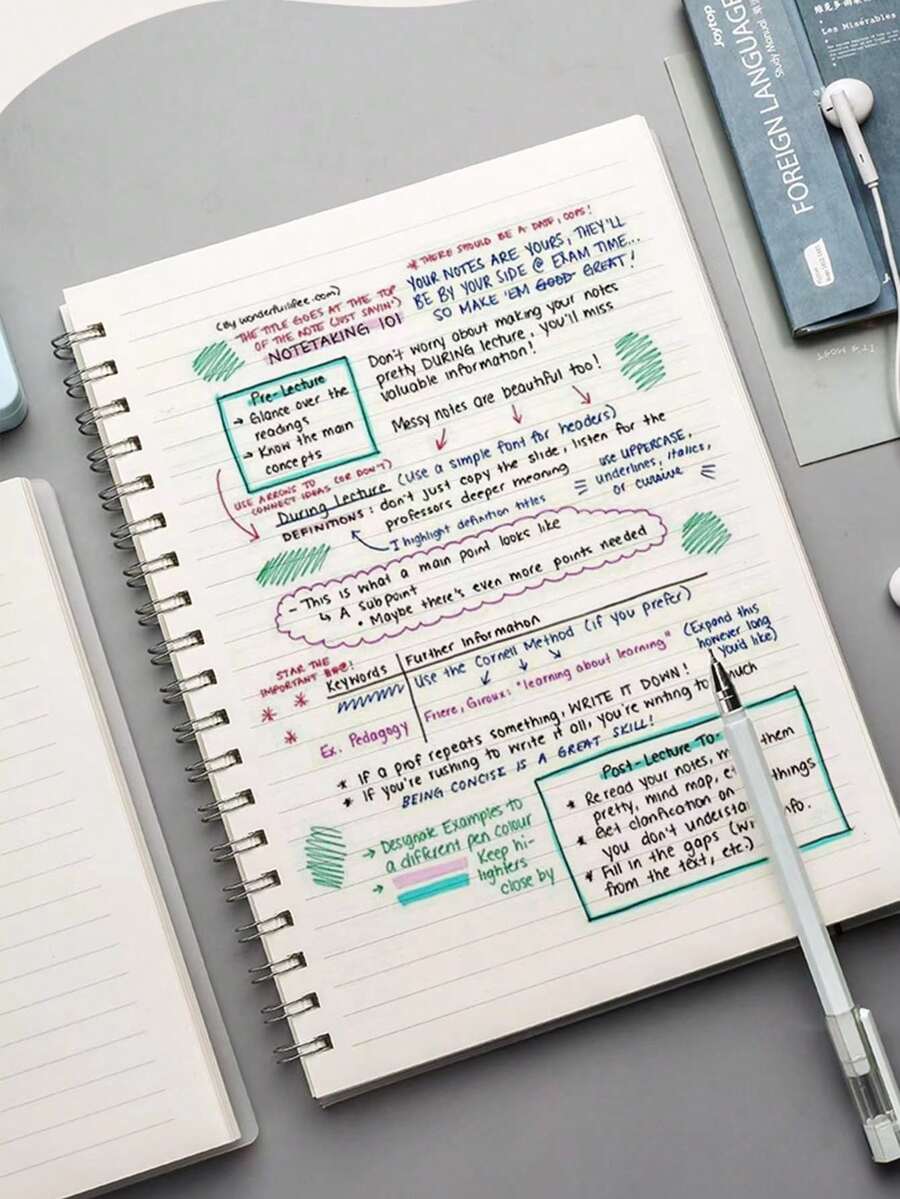 * THERE SHOULD BE A DATE, OOPS!
YOUR NOTES ARE YOURS, THEY'LL
BE BY YOUR SIDE @ EXAM TIME...
SO MAKE 'EM GOOD GREAT!
(By wonderfullifee.com)
THE TITLE GOES AT THE TOP
OF THE NOTE (JUST SAYIN')
NOTETAKING 101
Don't worry about making your notes
pretty DURING lecture, you'll miss
valuable information!
Messy notes are beautiful too!
Pre-Lecture
→ Glance over the
readings
→ Know the main
concepts
USE ARROWS TO
CONNECT IDEAS (OR DON'T)
During Lecture (use a simple font for headers)
DEFINITIONS: don't just copy the slide, listen for the
professors deeper meaning
I highlight definition titles
USE UPPERCASE,
underlines, italics,
or cursive
- This is what a main point looks like
↳ A subpoint
• Maybe there's even more points needed
STAR THE
IMPORTANT
Keywords
Further Information
Use the Cornell Method (if you prefer)
(Expand this
however long
you'd like)
Ex. Pedagogy
Friere, Giroux: "learning about learning"
* If a prof repeats something, WRITE IT DOWN!
* If you're rushing to write it all, you're writing too much
BEING CONCISE IS A GREAT SKILL!
→ Designate Examples to
a different pen colour
→ Keep hi-
lighters
close by
Post-Lecture To
* Reread your notes, them
pretty, mind map,
* Get clarification on things
you don't
* Fill in the gaps info.
from the text, etc.)
Joytop
FOREIGN LANGUAGE
Study Manual
Les Misérables